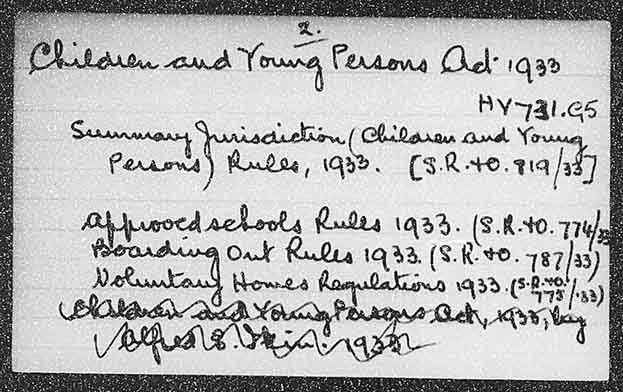 2.
Children and Young Persons Act 1933
HV 731.G5
Summary Jurisdiction (Children and Young
Persons) Rules, 1933. [S.R.+O. 819/33]
Approved schools Rules 1933. (S.R.+O. 774/33
Boarding Out Rules 1933. (S.R.+O. 787/33)
Voluntary Homes Regulations 1933. (S.R.+O. 773/33)
Children and Young Persons Act, 1933, by
Alfred E. 1933